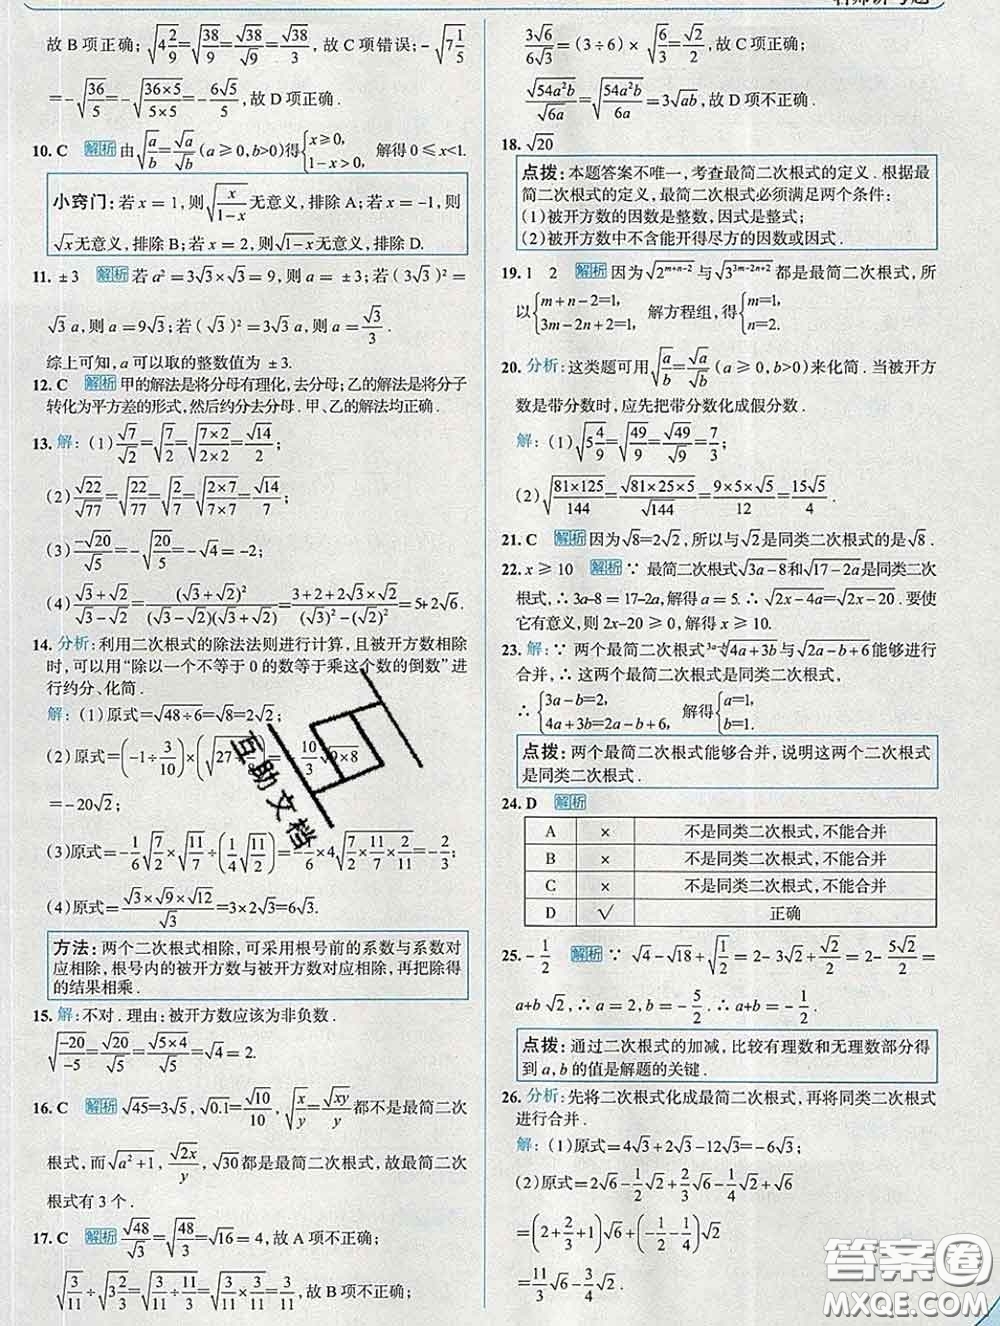 故 B 项正确; √(4 2/9) = √(38/9) = √38/√9 = √38/3, 故 C 项错误; -√(7 1/5)
= -√(36/5) = -√((36×5)/(5×5)) = -6√5/5, 故 D 项正确.
10. C 解析 由√(a/b) = √a/√b (a≥0, b>0)得{x≥0, 1-x>0, 解得 0≤x<1.
小窍门: 若 x=1, 则√(x/(1-x))无意义, 排除 A; 若 x=-1, 则
√x无意义, 排除 B; 若 x=2, 则√(1-x)无意义, 排除 D.
11. ±3 解析 若 a²=3√3×√3=9, 则 a=±3; 若(3√3)²=
√3 a, 则 a=9√3; 若(√3)²=3√3 a, 则 a=√3/3.
综上可知, a 可以取的整数值为 ±3.
12. C 解析 甲的解法是将分母有理化, 去分母; 乙的解法是将分子
转化为平方差的形式, 然后约分去分母. 甲、乙的解法均正确.
13. 解: (1) √7/√2 = √(7/2) = √((7×2)/(2×2)) = √14/2;
(2) √22/√77 = √(22/77) = √(2/7) = √((2×7)/(7×7)) = √14/7;
(3) -√20/√5 = -√(20/5) = -√4 = -2;
(4) (√3+√2)/(√3-√2) = (√3+√2)²/((√3-√2)(√3+√2)) = (3+2+2√3×√2)/((√3)²-(√2)²) = 5+2√6.
14. 分析: 利用二次根式的除法法则进行计算, 且被开方数相除
时, 可以用“除以一个不等于 0 的数等于乘这个数的倒数”进
行约分、化简.
解: (1)原式=√(48÷6)=√8=2√2;
(2)原式=(-1÷3/10)×(√(27 = -10/3 √(9×8)
=-20√2;
(3)原式=-1/6 √(7/2)×√(11/7)÷(1/4 √(11/2)) = /6 ×4√(7/2×11/7×2/11) = -4/6 = -2/3;
(4)原式=(√3×√9×√12)/√3=3×2√3=6√3.
方法: 两个二次根式相除, 可采用根号前的系数与系数对
应相除, 根号内的被开方数与被开方数对应相除, 再把除得
的结果相乘.
15. 解: 不对. 理由: 被开方数应该为非负数.
√(-20/-5) = √20/√5 = √(5×4)/√5 = √4 = 2.
16. C 解析 √45=3√5, √0.1=√10/10, √(x/y)=√xy/y都不是最简二次
根式, 而√(a²+1), √2x/y, √30都是最简二次根式, 故最简二次
根式有 3 个.
17. C 解析 √48/√3=√(48/3)=√16=4, 故 A 项不正确;
√(3/11)÷√(3/11)=√(3/11÷3/11), 故 B 项不正确;
3√6/6√3=(3÷6)×√(6/3)=√2/2, 故 C 项正确;
√(54a²b)/√(6a)=√(54a²b/6a)=3√ab, 故 D 项不正确.
18. √20
点拨: 本题答案不唯一, 考查最简二次根式的定义. 根据最
简二次根式的定义, 最简二次根式必须满足两个条件:
(1)被开方数的因数是整数, 因式是整式;
(2)被开方数中不含能开得尽方的因数或因式.
19. 1 2 解析 因为√(2^(m+n-2))与√(3^(3m-2n+2))都是最简二次根式, 所
以{m+n-2=1, 3m-2n+2=1, 解方程组, 得{m=1, n=2.
20. 分析: 这类题可用√(a/b)=√a/√b (a≥0, b>0)来化简. 当被开方
数是带分数时, 应先把带分数化成假分数.
解: (1)√(5 4/9)=√(49/9)=√49/√9=7/3;
(2)√((81×125)/144)=√(81×25×5)/√144=(9×5×√5)/12=15√5/4.
21. C 解析 因为√8=2√2, 所以与√2是同类二次根式的是√8.
22. x≥10 解析 ∵ 最简二次根式√(3a-8)和√(17-2a)是同类二次
根式, ∴ 3a-8=17-2a, 解得 a=5. ∴ √(2x-4a)=√(2x-20). 要使
它有意义, 则 2x-20≥0, 解得 x≥10.
23. 解: ∵ 两个最简二次根式 ³ᵃ⁻ᵇ√(4a+3b)与√(2a-b+6)能够进行
合并, ∴ 这两个最简二次根式是同类二次根式,
∴ {3a-b=2, 4a+3b=2a-b+6, 解得{a=1, b=1.
点拨: 两个最简二次根式能够合并, 说明这两个二次根式
是同类二次根式.
24. D 解析
A × 不是同类二次根式, 不能合并
B × 不是同类二次根式, 不能合并
C × 不是同类二次根式, 不能合并
D √ 正确
25. -1/2 解析 ∵ √4-√18+√(1/2)=2-3√2+√2/2=2-5√2/2=
a+b√2, ∴ a=2, b=-5/2. ∴ a+b=-1/2.
点拨: 通过二次根式的加减, 比较有理数和无理数部分得
到 a, b 的值是解题的关键.
26. 分析: 先将二次根式化成最简二次根式, 再将同类二次根式
进行合并.
解: (1)原式=4√3+2√3-12√3=-6√3;
(2)原式=2√6-1/2 √2+2/3 √6-1/4 √2+√6
=(2+2/3+1)√6+(-1/2-1/4)√2
=11/3 √6-3/4 √2.
互助文档
答案圈
MXQE.COM